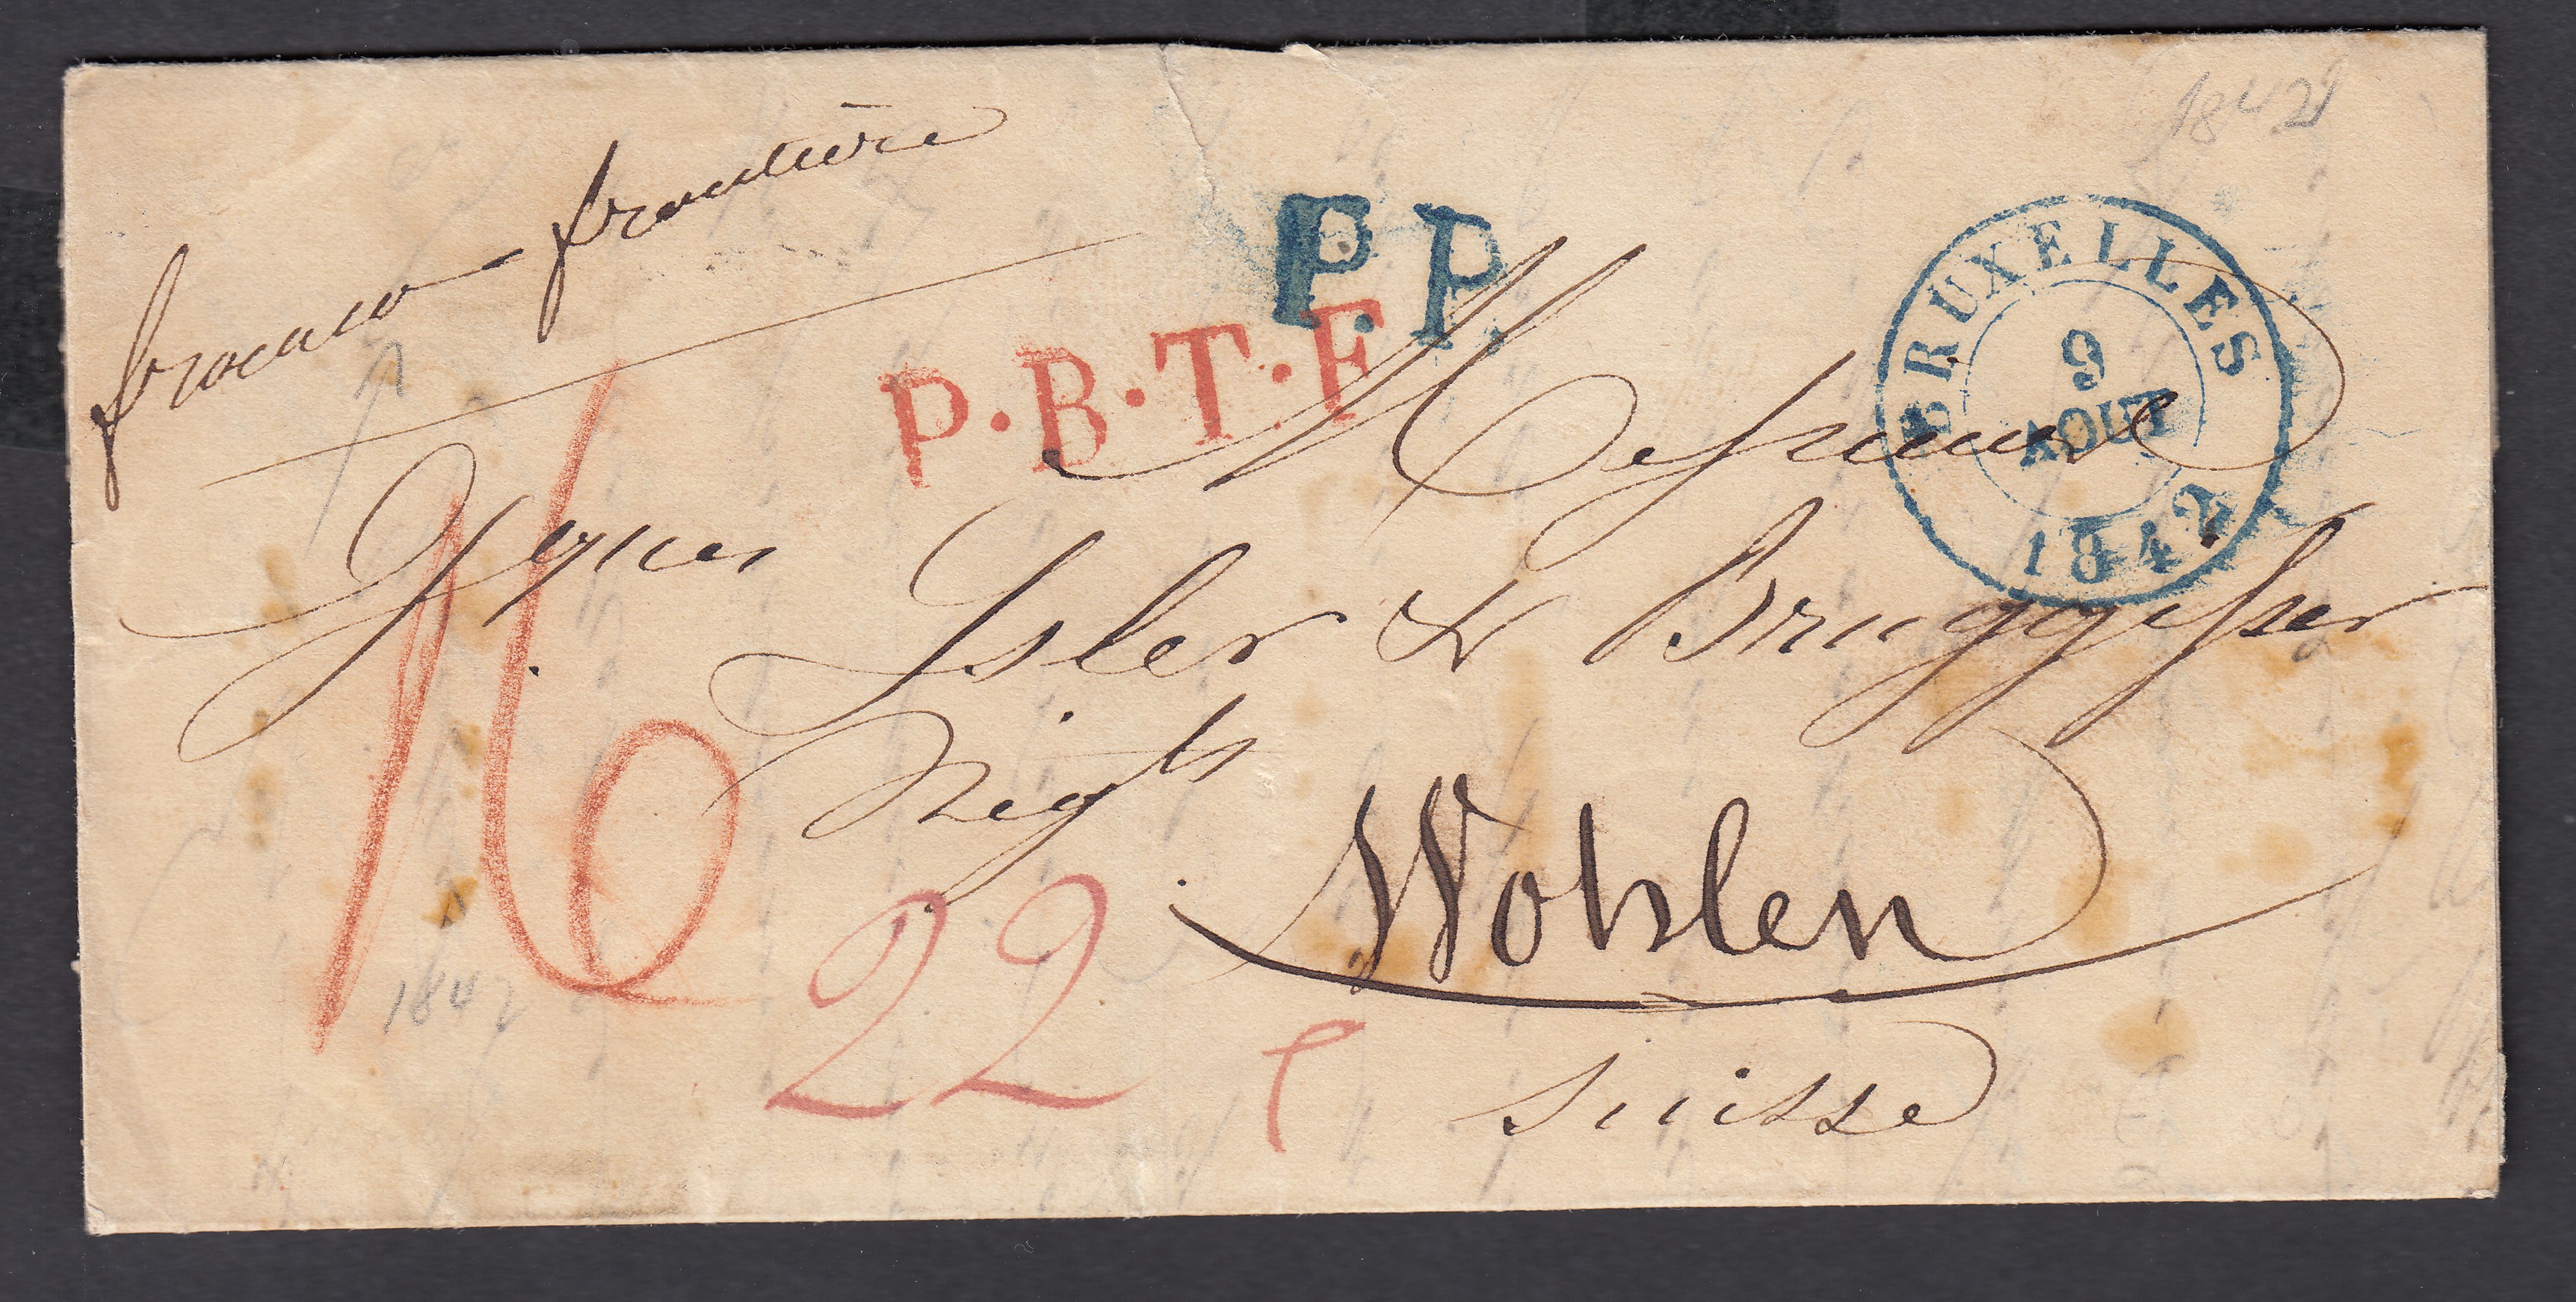 1842
franco frontière
P.P.
BRUXELLES
9
AOUT
1842
P.B.T.F.
Messieurs
Jques Isler & Bruggisser
Negts
16
Wohlen
22
1842
Suisse